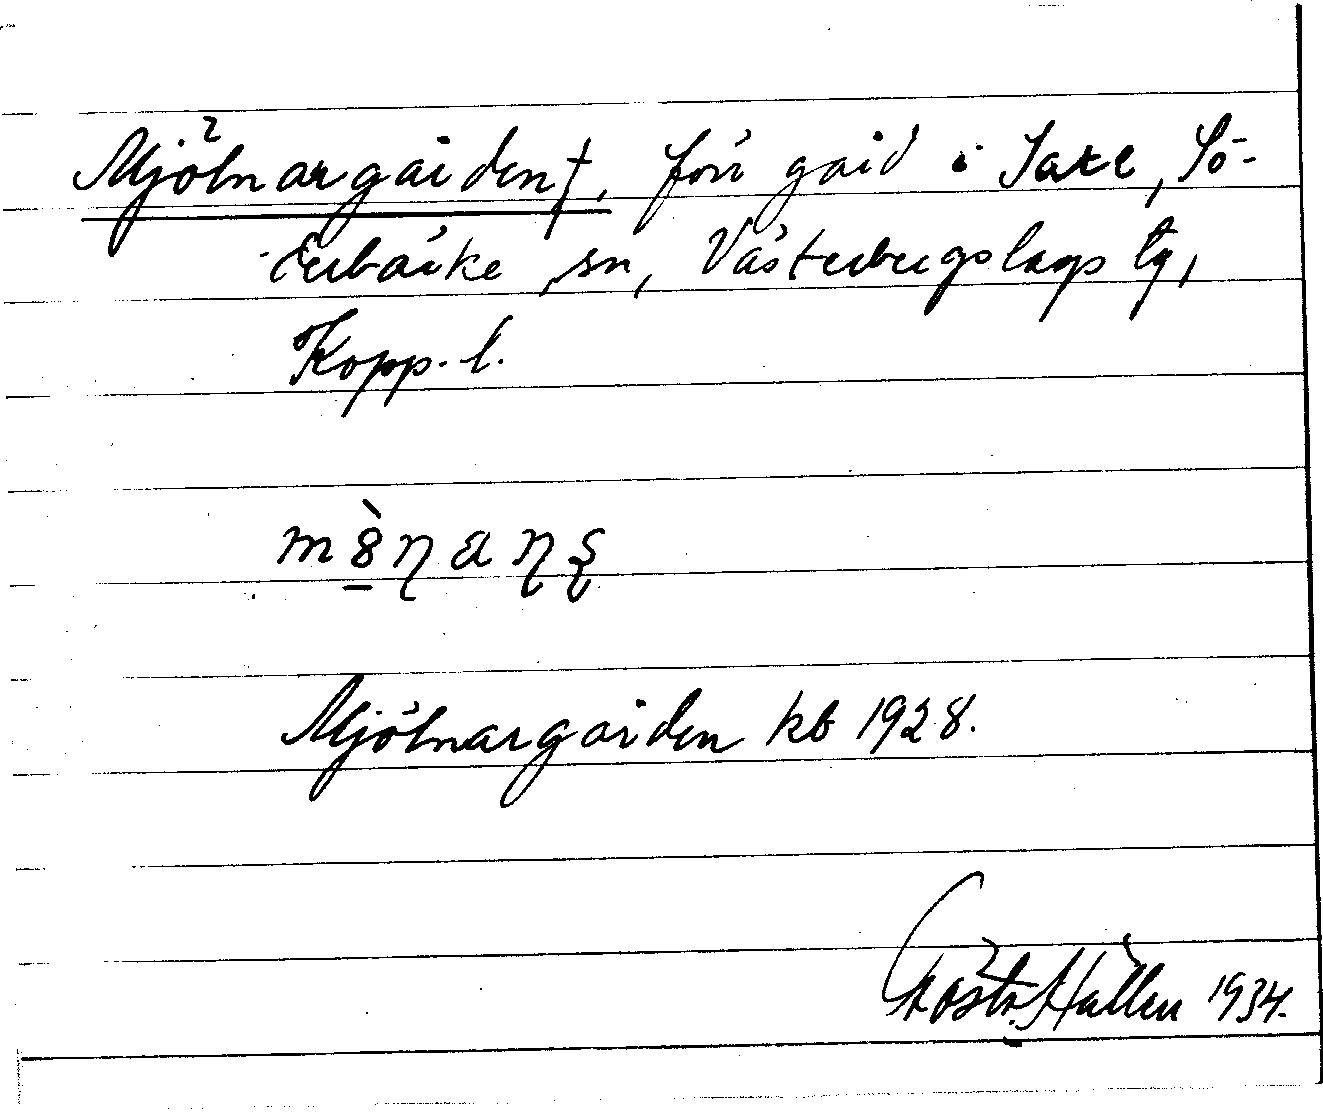 Mjölnargården†, förr gård i Saxe, Sö-
derbärke sn, Västerbergslags tg,
Kopp. l.
Mjölnargården kb 1928.
Gösta Hallen 1934.